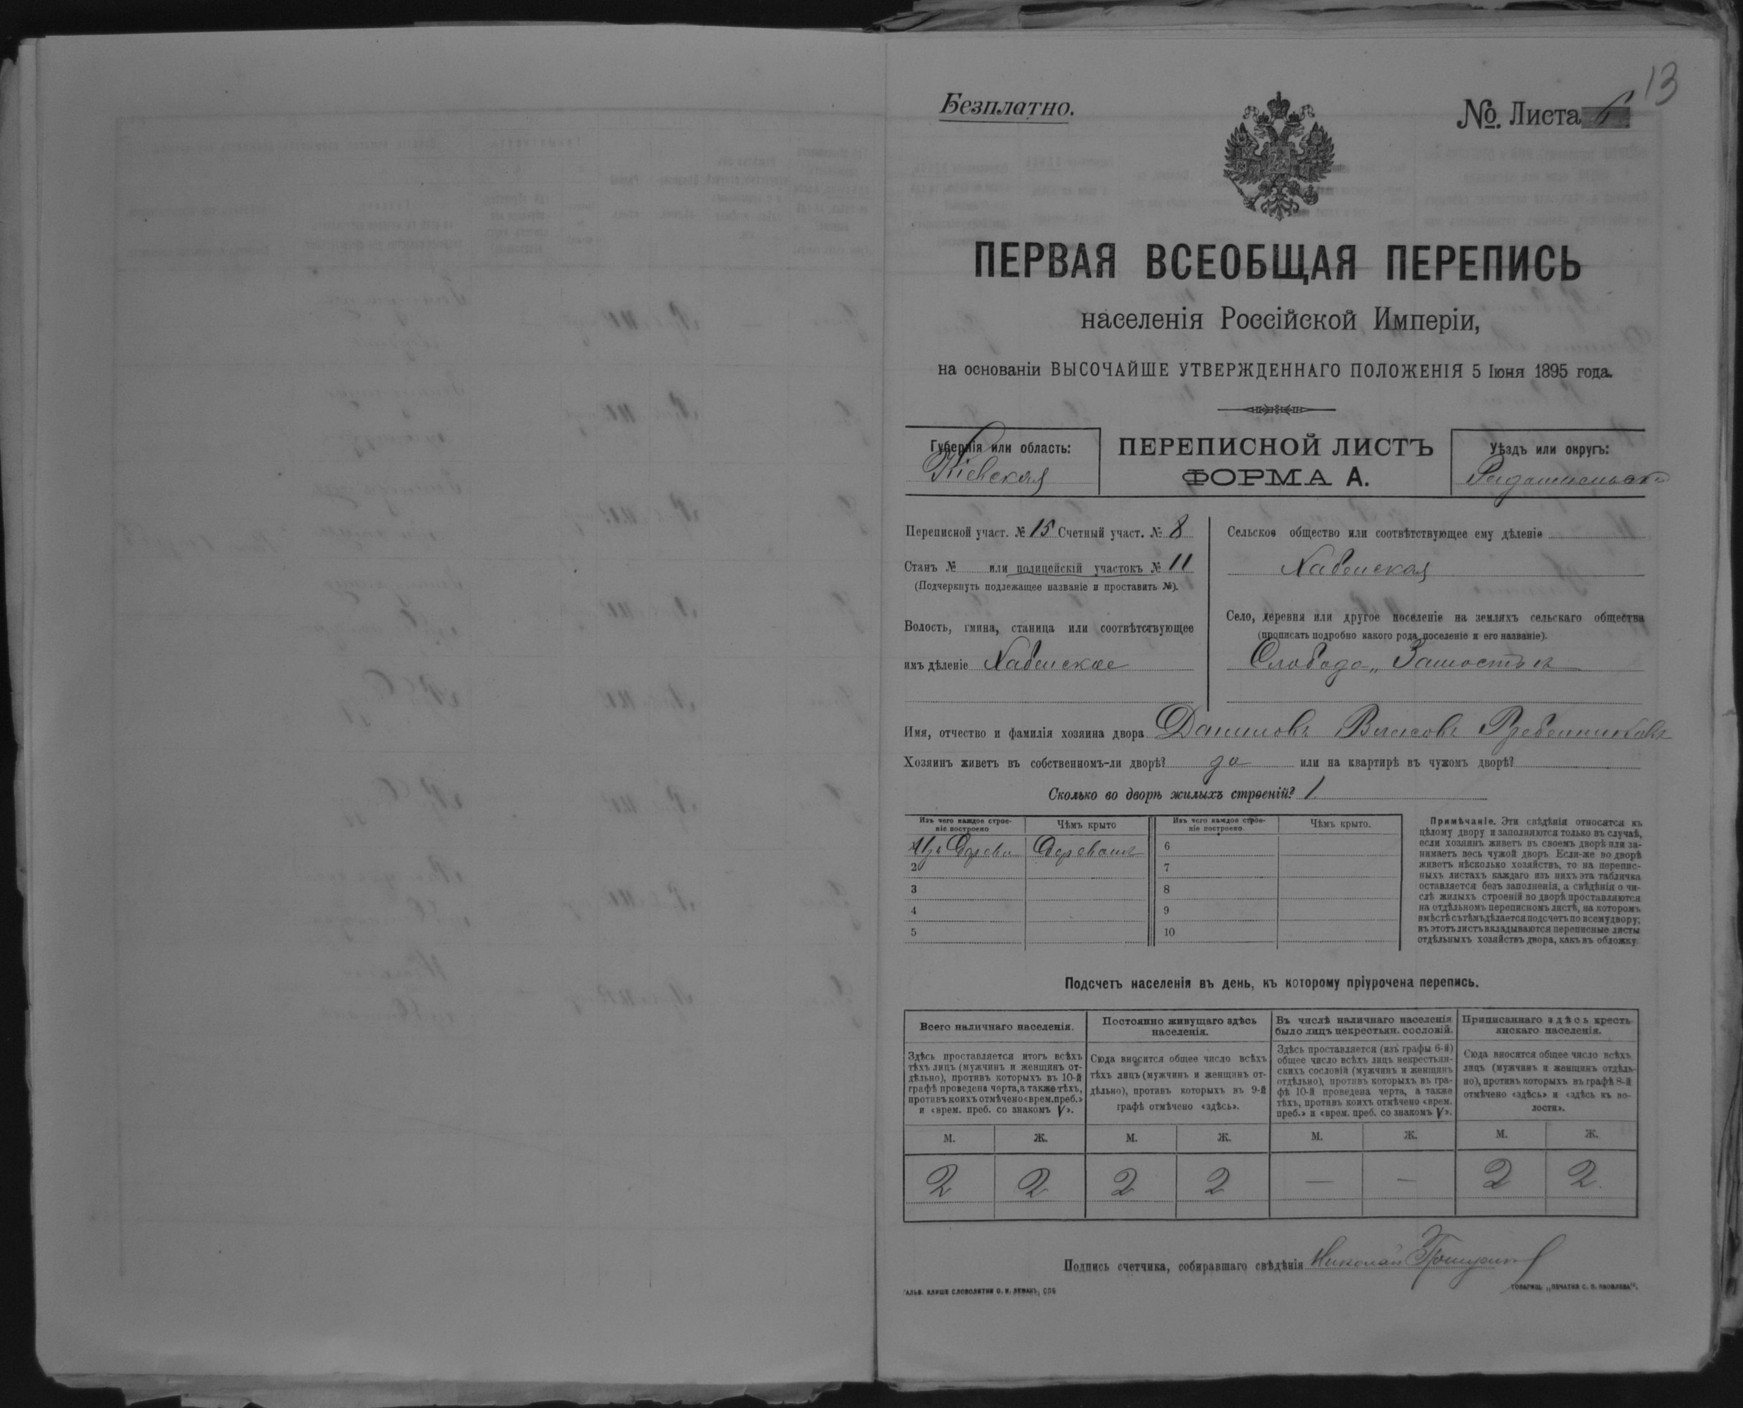 13
Безплатно.
№. Листа 6
ПЕРВАЯ ВСЕОБЩАЯ ПЕРЕПИСЬ
населенія Россійской Имперіи,
на основаніи ВЫСОЧАЙШЕ УТВЕРЖДЕННАГО ПОЛОЖЕНІЯ 5 Іюня 1895 года.
Губернія или область:
Кіевская
ПЕРЕПИСНОЙ ЛИСТЪ
ФОРМА А.
Уѣздъ или округъ:
Переписной участ. № 15 Счетный участ. № 8
Станъ № или полицейскій участокъ № 11
(Подчеркнуть подлежащее названіе и проставить №).
Волость, гмина, станица или соотвѣтствующее
имъ дѣленіе Хабенское
Сельское общество или соотвѣтствующее ему дѣленіе
Хабенская
Село, деревня или другое поселеніе на земляхъ сельскаго общества
(прописать подробно какого рода поселеніе и его названіе).
Слобода „
Имя, отчество и фамилія хозяина двора Даниловъ Власовъ
Хозяинъ живетъ въ собственномъ-ли дворѣ? да или на квартирѣ въ чужомъ дворѣ?
Сколько во дворѣ жилыхъ строеній? 1
Изъ чего каждое строе-
ніе построено
Чѣмъ крыто
Изъ чего каждое строе-
ніе построено
Чѣмъ крыто.
Изъ дерева
6
2
7
3
8
4
9
5
10
Примѣчаніе. Эти свѣдѣнія относятся къ
цѣлому двору и заполняются только въ случаѣ,
если хозяинъ живетъ въ своемъ дворѣ или за-
нимаетъ весь чужой дворъ. Если-же во дворѣ
живетъ нѣсколько хозяйствъ, то на перепис-
ныхъ листахъ каждаго изъ нихъ эта табличка
оставляется безъ заполненія, а свѣдѣнія о чи-
слѣ жилыхъ строеній во дворѣ проставляются
на отдѣльномъ переписномъ листѣ, на которомъ
вмѣстѣ съ тѣмъ дѣлается подсчетъ по всему двору;
въ этотъ листъ вкладываются переписные листы
отдѣльныхъ хозяйствъ двора, какъ въ обложку.
Подсчетъ населенія въ день, къ которому пріурочена перепись.
Всего наличнаго населенія.
Здѣсь проставляется итогъ всѣхъ
тѣхъ лицъ (мужчинъ и женщинъ от-
дѣльно), противъ которыхъ въ 10-й
графѣ проведена черта, а также тѣхъ,
противъ коихъ отмѣчено «врем. преб.»
и «врем. преб. со знакомъ V».
Постоянно живущаго здѣсь
населенія.
Сюда вносится общее число всѣхъ
тѣхъ лицъ (мужчинъ и женщинъ от-
дѣльно), противъ которыхъ въ 9-й
графѣ отмѣчено «здѣсь».
Въ числѣ наличнаго населенія
было лицъ некрестьян. сословій.
Здѣсь проставляется (изъ графы 6-й)
общее число всѣхъ лицъ некрестьян-
скихъ сословій (мужчинъ и женщинъ
отдѣльно), противъ которыхъ въ гра-
фѣ 10-й проведена черта, а также
тѣхъ, противъ коихъ отмѣчено «врем.
преб.» и «врем. преб. со знакомъ V».
Приписаннаго здѣсь кресть-
янскаго населенія.
Сюда вносится общее число всѣхъ
лицъ (мужчинъ и женщинъ отдѣль-
но), противъ которыхъ въ графѣ 8-й
отмѣчено «здѣсь» и «здѣсь къ во-
лости».
М. Ж. М. Ж. М. Ж. М. Ж.
2 2 2 2 — — 2 2
Подпись счетчика, собиравшаго свѣдѣнія Николай